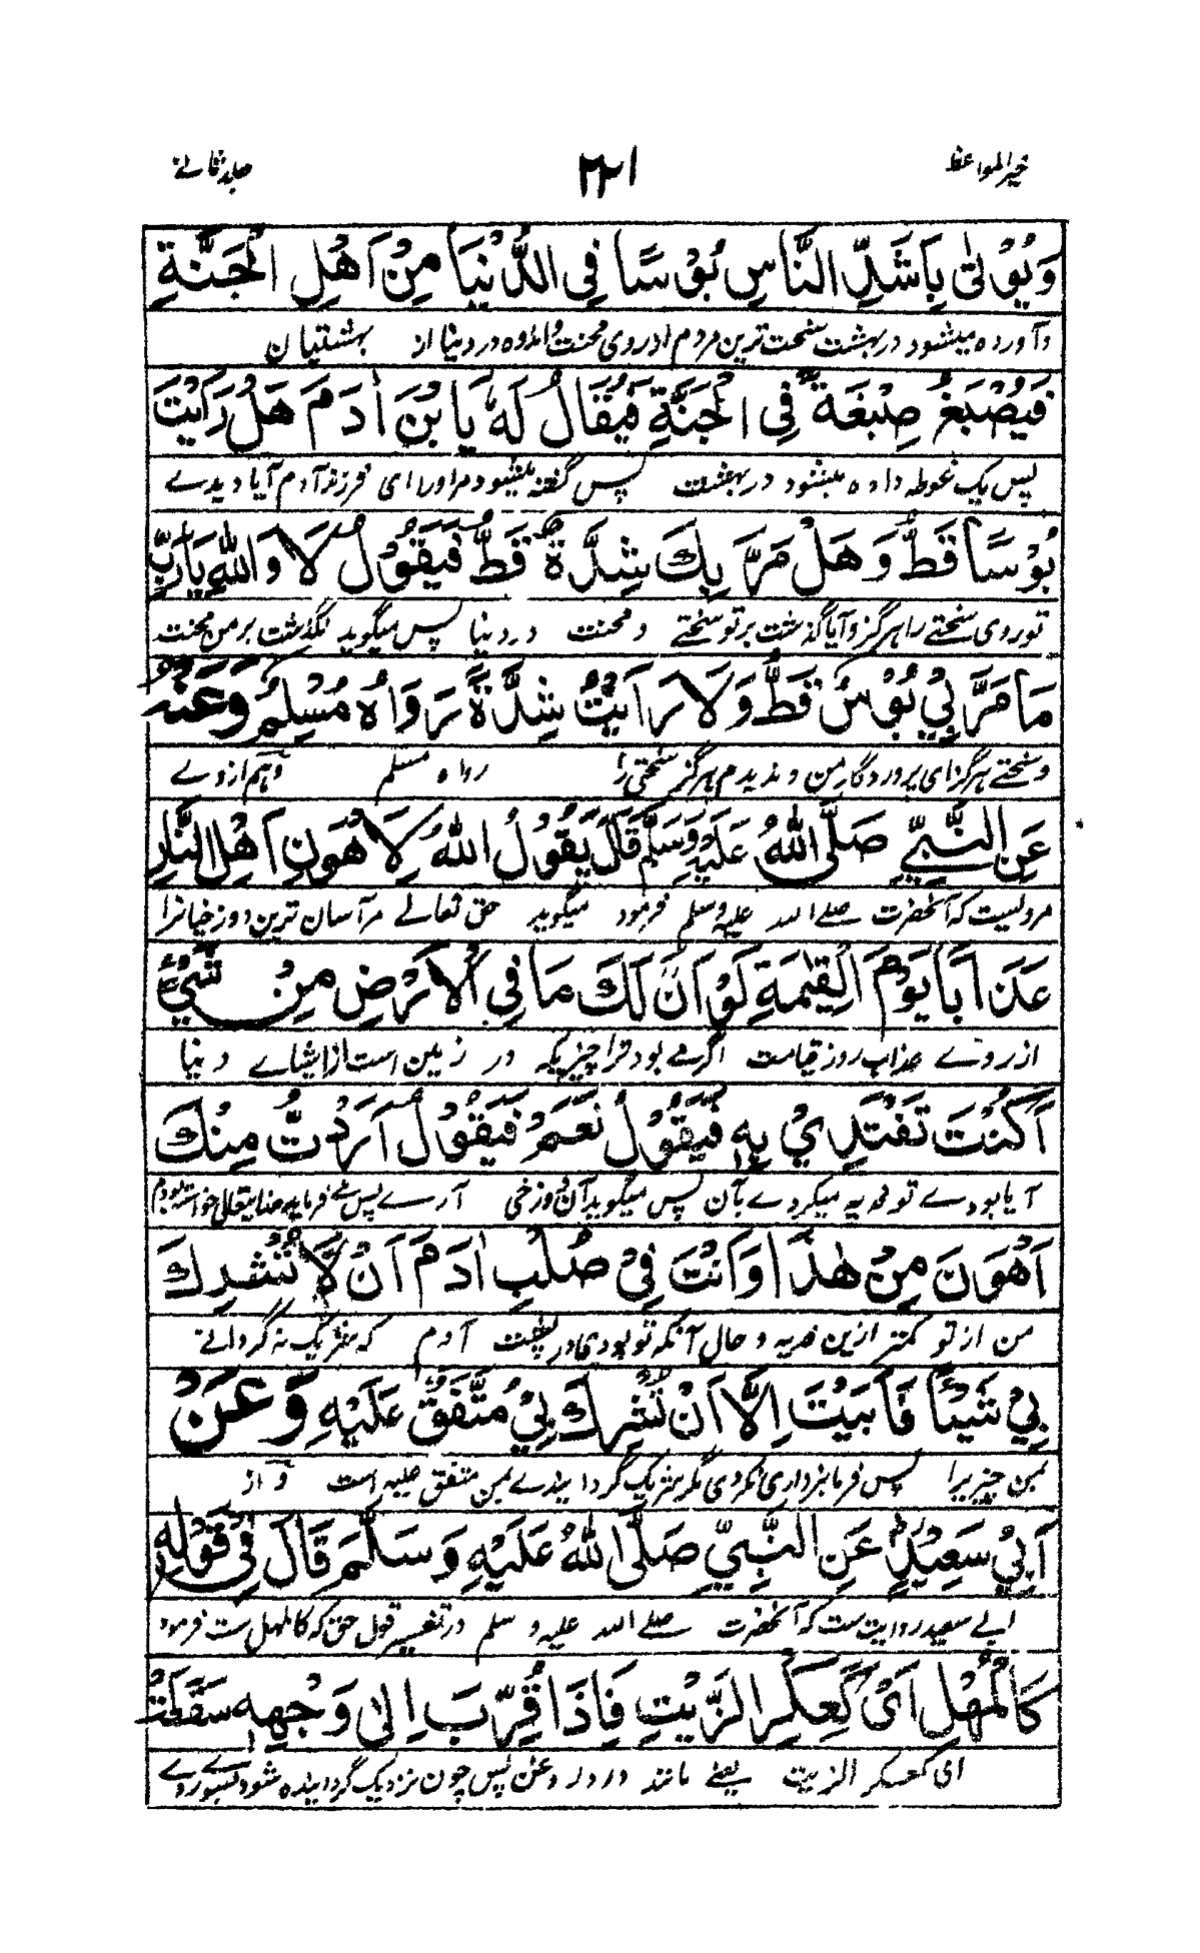 خیر المواعظ ۲۲۱ جلد ثانی
وَيُؤْتٰى بِاَشَدِّ النَّاسِ بُؤْسًا فِي الدُّنْيَا مِنْ اَهْلِ الْجَنَّةِ
و آورده میشود در بهشت سخت ترین مردم از روی محنت و اندوه در دنیا از بهشتیان
فَيُصْبَغُ صِبْغَةً فِي الْجَنَّةِ فَيُقَالُ لَهٗ يَا بْنَ اٰدَمَ هَلْ رَاَيْتَ
پس یک غوطه داده میشود در بهشت پس گفته میشود مر او را ای فرزند آدم آیا دیدے
بُؤْسًا قَطُّ وَهَلْ مَرَّ بِكَ شِدَّةٌ قَطُّ فَيَقُوْلُ لَا وَاللّٰهِ يَارَبِّ
تو روی سختے را هرگز و آیا گذشت بر تو سختے و محنت در دنیا پس میگوید نگذشت بر من محنت
مَا مَرَّ بِيْ بُؤْسٌ قَطُّ وَلَا رَاَيْتُ شِدَّةً رَوَاهُ مُسْلِمٌ وَعَنْهُ
و سختے هرگز ای پروردگار من و ندیدم هرگز سختی را رواه مسلم و هم از وے
عَنِ النَّبِيِّ صَلَّى اللّٰهُ عَلَيْهِ وَسَلَّمَ قَالَ يَقُوْلُ اللّٰهُ لِاَهْوَنِ اَهْلِ النَّارِ
مرویست که آنحضرت صلے الله علیه وسلم فرمود میگوید حق تعالے مر آسان ترین دوزخیانرا
عَذَابًا يَوْمَ الْقِيٰمَةِ لَوْ اَنَّ لَكَ مَا فِي الْاَرْضِ مِنْ شَيْءٍ
از روے عذاب روز قیامت اگر مے بود ترا چیزیکه در زمین است از اشیاے دنیا
اَكُنْتَ تَفْتَدِيْ بِهٖ فَيَقُوْلُ نَعَمْ فَيَقُوْلُ اَرَدْتُ مِنْكَ
آیا بودے تو فدیه میکردے بآن پس میگوید آن دوزخی آرے پس مے فرماید خدایتعالی خواسته بودم
اَهْوَنَ مِنْ هٰذَا وَاَنْتَ فِيْ صُلْبِ اٰدَمَ اَنْ لَّا تُشْرِكَ
من از تو کمتر ازین فدیه و حال آنکه تو بودی در پشت آدم که شریک نه گردانے
بِيْ شَيْئًا فَاَبَيْتَ اِلَّا اَنْ تُشْرِكَ بِيْ مُتَّفَقٌ عَلَيْهِ وَعَنْ
بمن چیزیرا پس فرمانبرداری نکردی مگر شریک گردانیدے بمن متفق علیه است و از
اَبِيْ سَعِيْدٍ عَنِ النَّبِيِّ صَلَّى اللّٰهُ عَلَيْهِ وَسَلَّمَ قَالَ فِيْ قَوْلِهٖ
ابے سعید روایت ست که آنحضرت صلے الله علیه و سلم در تفسیر قول حق که کالمهل ست فرمود
كَالْمُهْلِ اَيْ كَعَكِرِ الزَّيْتِ فَاِذَا قُرِّبَ اِلٰى وَجْهِهٖ سَقَطَتْ
ای کعکر الزیت یعنے مانند درد روغن پس چون نزدیک گردانیده شود بسوی روے